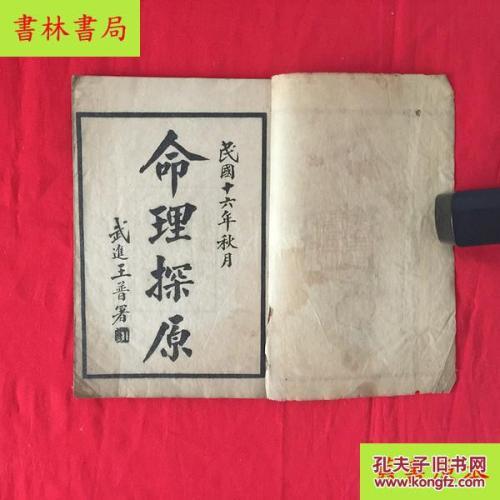 書林書局
民國十六年秋月
命理探原
武進王普署
孔夫子旧书网
www.kongfz.com